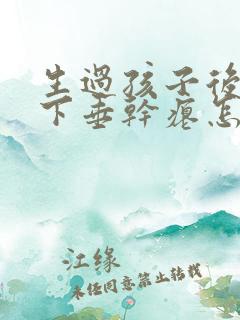 生過孩子後
下垂幹癟怎
江缘
未经同意禁止转载